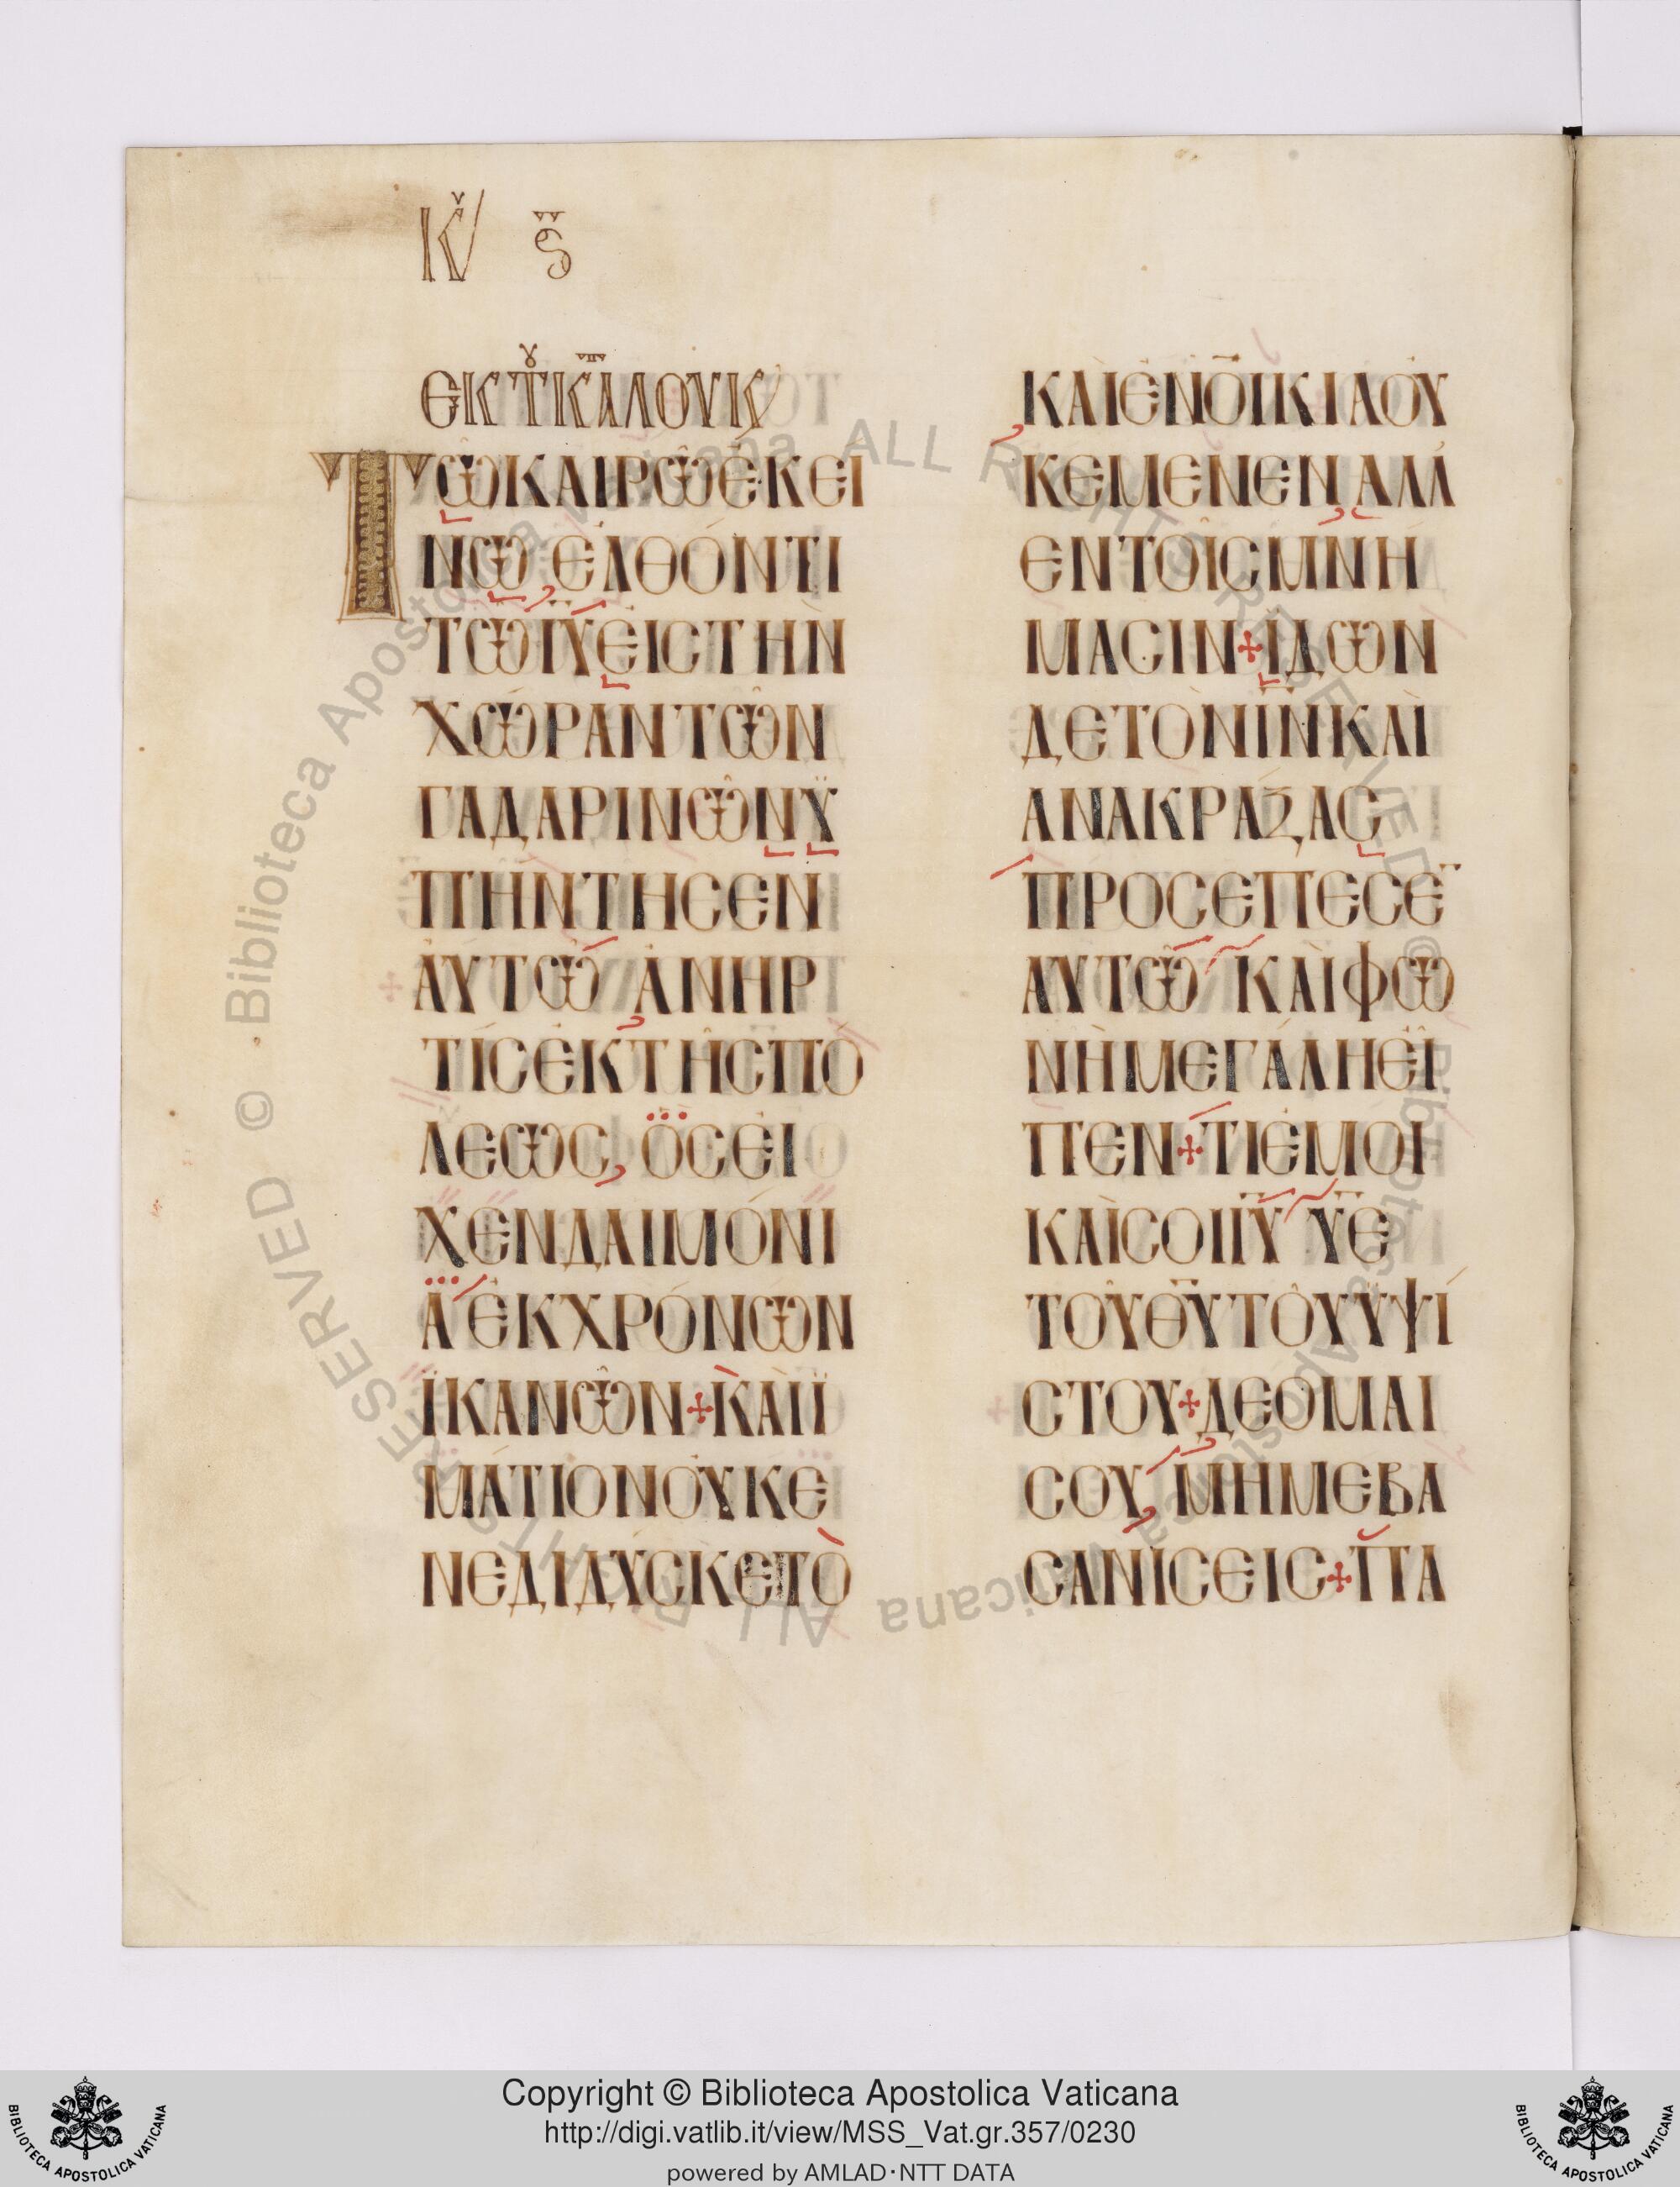 Κῦ Ϛ
ΕΚ Τ̊ Κ̅Α̅ ΛΟΥΚ
ΤῼΚΑΙΡῼΕΚΕΙ
ΝΩ ΕΛΘΟΝΤΙ
ΤΩΙΥΕΙΣΤΗΝ
ΧΩΡΑΝΤΩΝ
ΓΑΔΑΡΙΝΩΝΥ
ΠΗΝΤΗΣΕΝ
ΑΥΤΩ ΑΝΗΡ
ΤΙΣΕΚΤΗΣΠΟ
ΛΕΩΣ, ΟΣΕΙ
ΧΕΝΔΑΙΜΟΝΙ
ΑΕΚΧΡΟΝΩΝ
ΪΚΑΝΩΝ+ΚΑΙΪ
ΜΑΤΙΟΝΟΥΚΕ
ΝΕΔΙΔΥΣΚΕΤΟ
ΚΑΙΕΝΟΙΚΙΑΟΥ
ΚΕΜΕΝΕΝ,ΑΛΛ
ΕΝΤΟΙΣΜΝΗ
ΜΑΣΙΝ+ΪΔΩΝ
ΔΕΤΟΝΙΝΚΑΙ
ΑΝΑΚΡΑΞΑΣ
ΠΡΟΣΕΠΕΣΕ
ΑΥΤΩ ΚΑΙΦΩ
ΝΗΜΕΓΑΛΗΕΙ
ΠΕΝ+ΤΙΕΜΟΙ
ΚΑΙΣΟΙΙΥ ΥΕ
ΤΟΥΘΥΤΟΥΥΨΙ
ΣΤΟΥ+ΔΕΟΜΑΙ
ΣΟΥ, ΜΗΜΕΒΑ
ΣΑΝΙΣΕΙΣ+ΠΑ
© Biblioteca Apostolica Vaticana ALL RIGHTS RESERVED
Copyright © Biblioteca Apostolica Vaticana
http://digi.vatlib.it/view/MSS_Vat.gr.357/0230
powered by AMLAD·NTT DATA
BIBLIOTECA APOSTOLICA VATICANA
BIBLIOTECA APOSTOLICA VATICANA